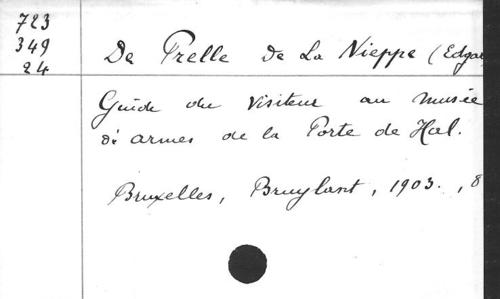 723
349
24
De Prelle de La Nieppe (Edgar
Guide du Visiteur au musée
d'armes de la Porte de Hal.
Bruxelles, Bruylant, 1903. , 8